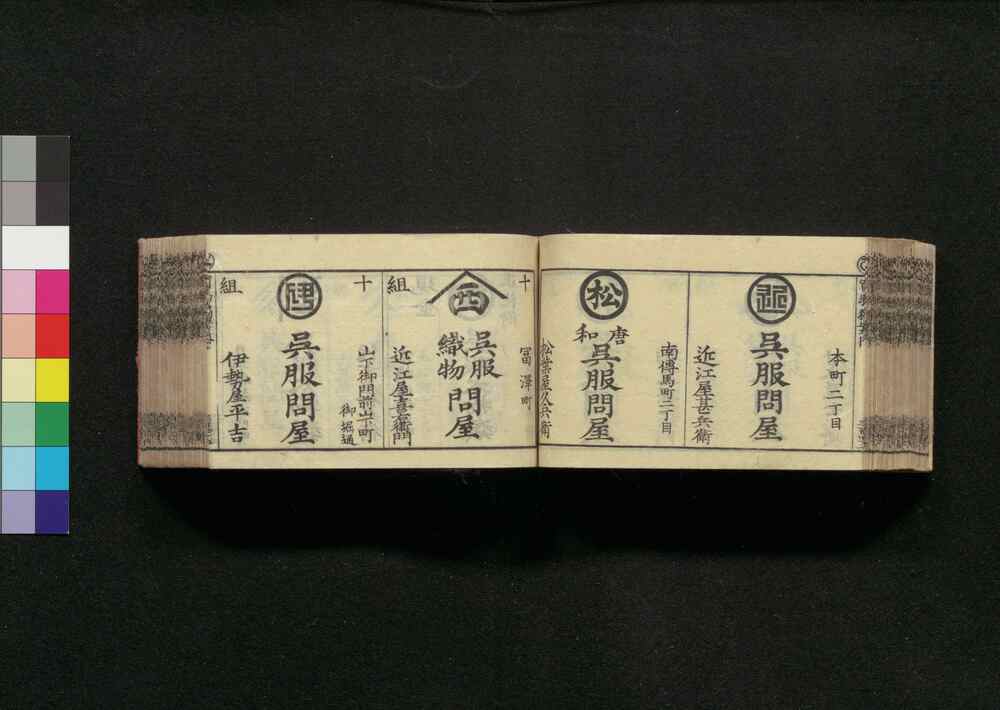 本町二丁目
呉服問屋
近江屋甚兵衛
南傳馬町二丁目
松
唐和呉服問屋
松葉屋久兵衛
十組
冨澤町
西
呉服織物問屋
近江屋喜右衛門
十組
山下御門前山下町
御堀通
呉服問屋
伊勢屋平吉